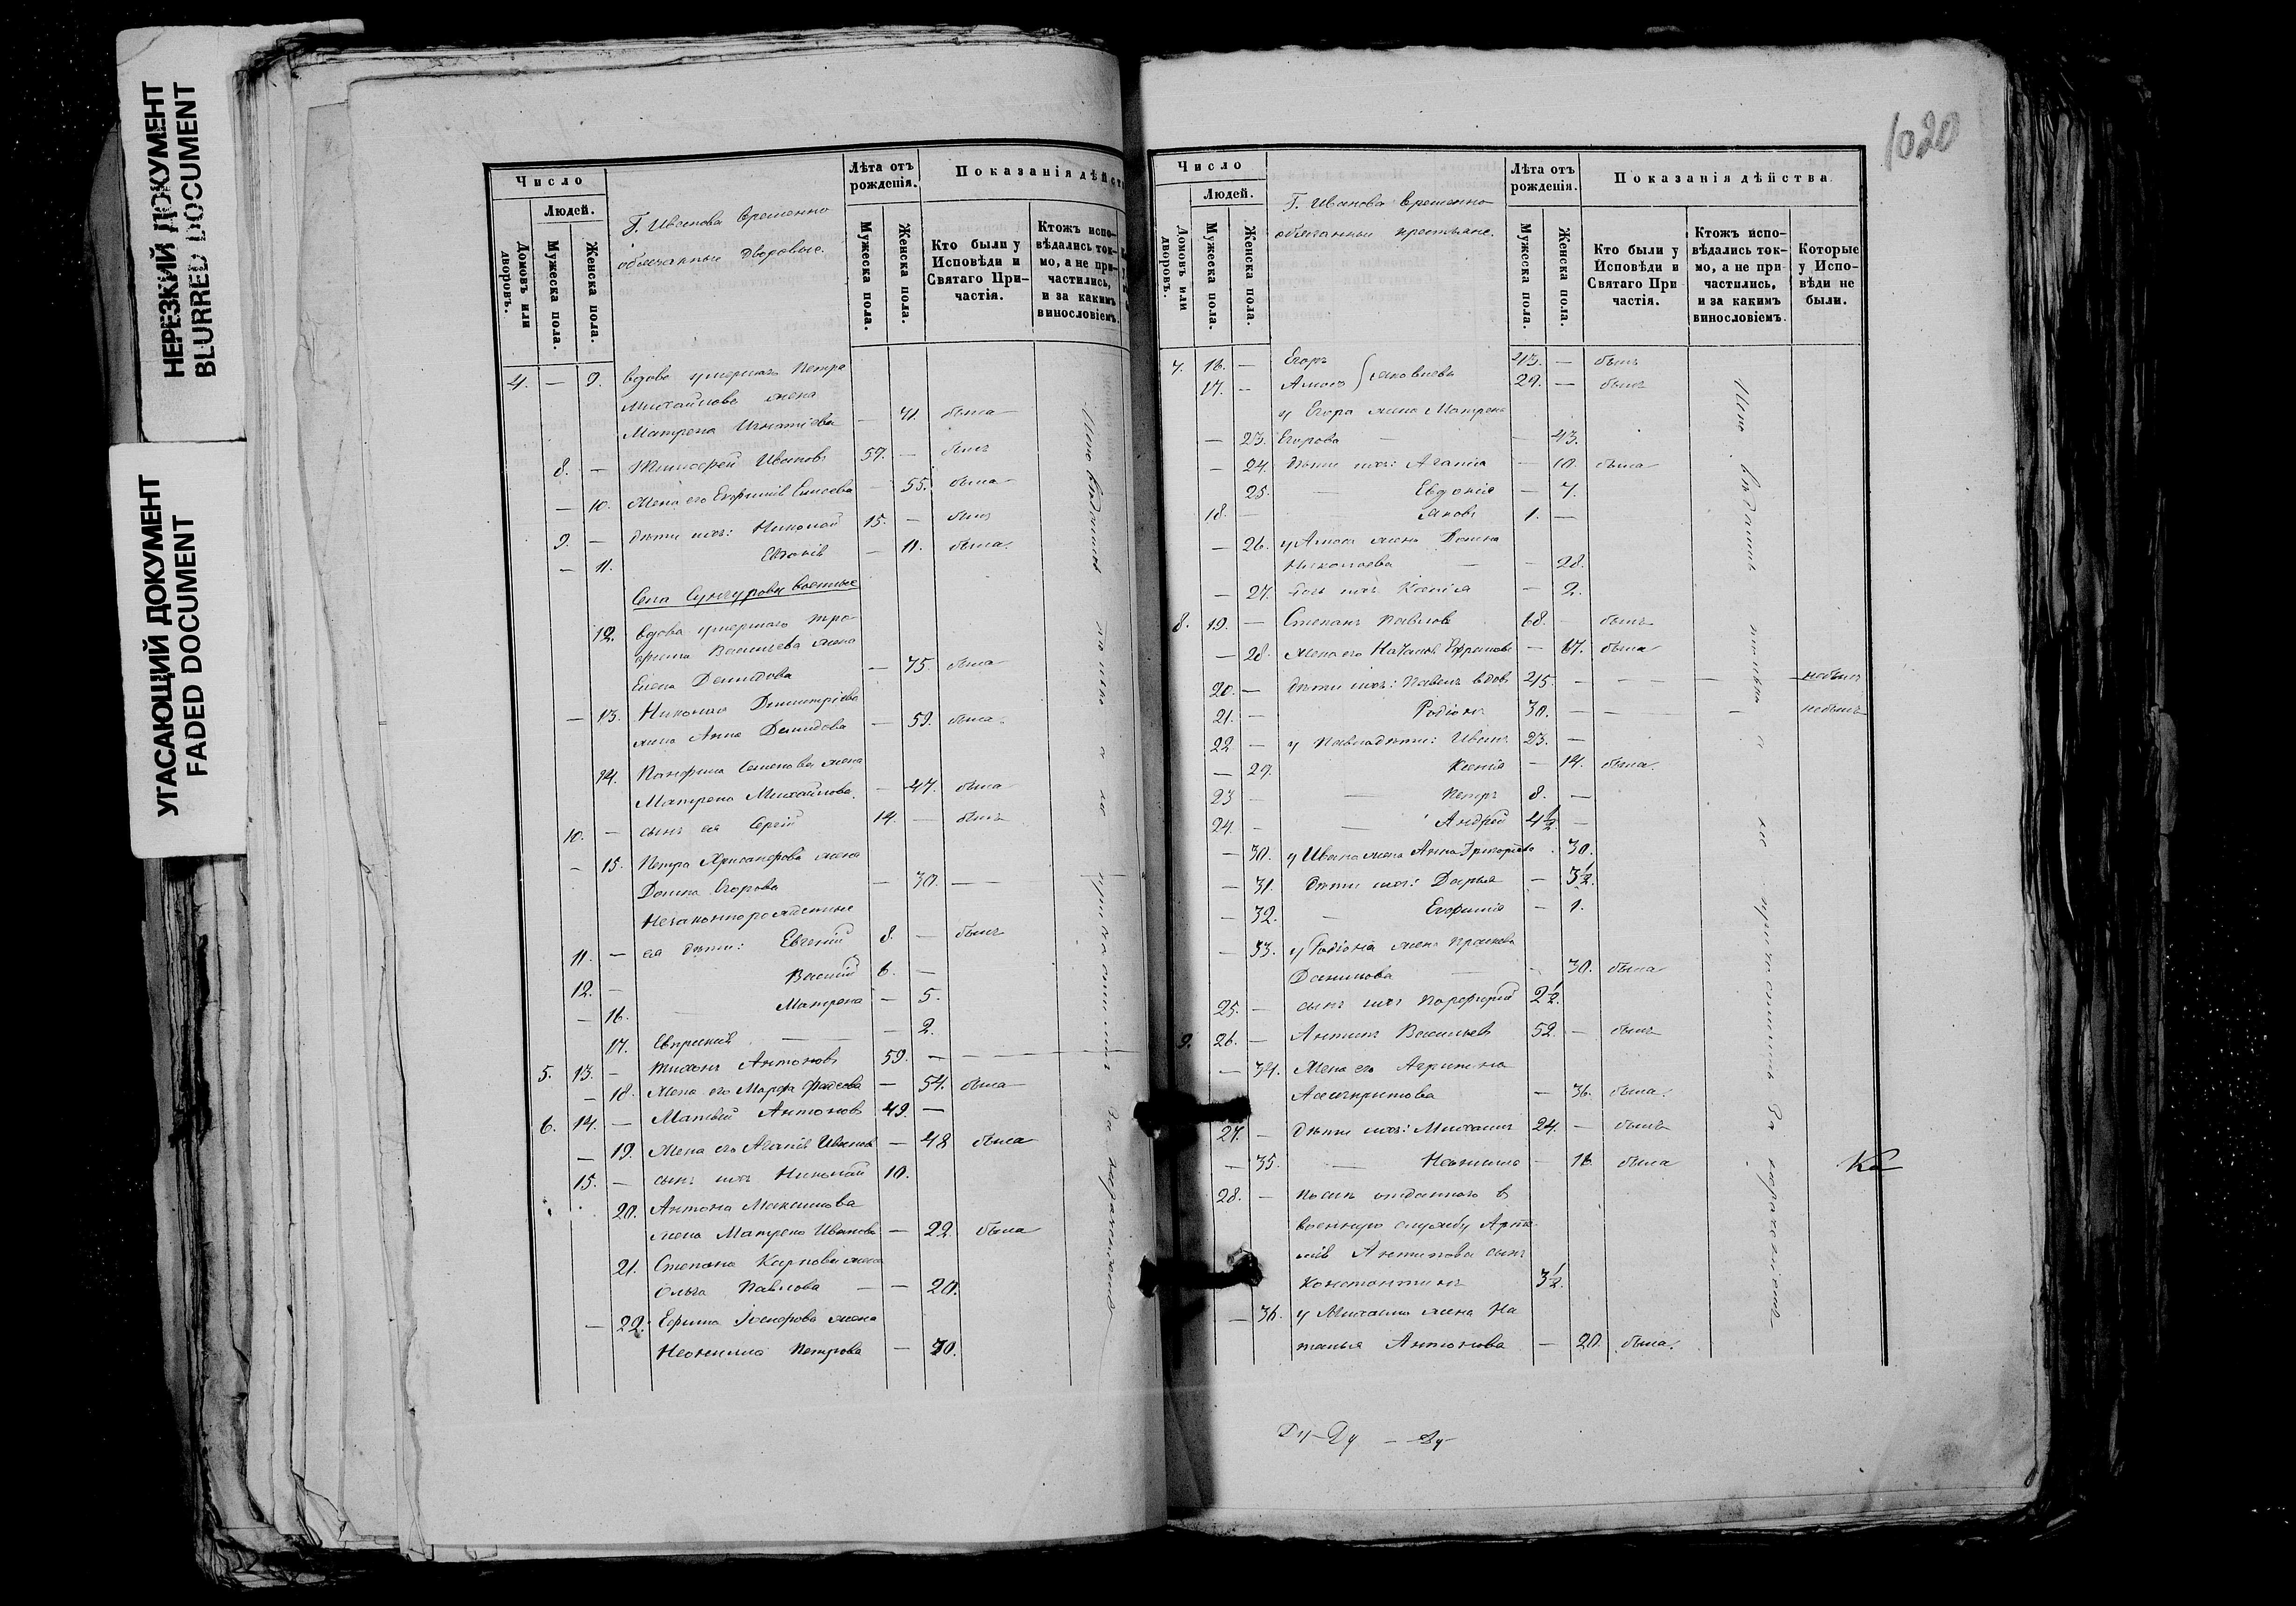 НЕРЕЗКИЙ ДОКУМЕНТ
BLURRED DOCUMENT
УГАСАЮЩИЙ ДОКУМЕНТ
FADED DOCUMENT
Число
Людей.
Домовъ или дворовъ.
Мужеска пола.
Женска пола.
Г. Иванова временно
обязанные дворовые.
Лѣта отъ рожденія.
Мужеска пола.
Женска пола.
Показанія дѣйст
Кто были у Исповѣди и Святаго Причастія.
Ктожъ исповѣдались токмо, а не причастились, и за какимъ винословіемъ.
4. — 9. вдова умершаго Петра
Михайлова жена
Матрена Игнатіева — 71. была
8. — Тимофей Ивановъ 57. — былъ
— 10. Жена его Евфимія Елисеева — 55. была
9. — дѣти ихъ: Николай 15. — былъ
— 11. Евдокія — 11. была
Села Сунгурова военные
12. вдова умершаго Тро
фима Васильева жена
Елена Демидова — 75. была
— 13. Николая Димитріева
жена Анна Демидова — 59. была
14. Панфила Семенова жена
Матрена Михайлова. — 47. была
10. — сынъ ея Сергій 14. — былъ
— 15. Петра Хрисанфова жена
Домна Егорова — 30. —
Незаконнорожденные
11. — ея дѣти: Евгеній 8. — былъ
12. — Василій 6. —
— 16. Матрена — 5.
17. Евпраксія — 2.
5. 13. — Тихонъ Антоновъ 59. —
— 18. Жена его Марфа Фадеева — 54. была
6. 14. — Матвѣй Антоновъ 49. —
— 19. Жена его Агапія Иванова — 48 была
15. — сынъ ихъ Николай 10.
20. Антона Максимова
жена Матрена Иванова — 22. была
21. Степана Карпова жена
Ольга Павлова — 20.
— 22. Ефима жена
Неонила Петрова — 30.
1020
Число
Людей.
Домовъ или дворовъ.
Мужеска пола.
Женска пола.
Г. Иванова временно
обязанные крестьяне.
Лѣта отъ рожденія.
Мужеска пола.
Женска пола.
Показанія дѣйства
Кто были у Исповѣди и Святаго При частія.
Ктожъ исповѣдались токмо, а не при частились, и за какимъ винословіемъ.
Которые у Исповѣди не были.
7. 16. — Егоръ 43. — былъ
17. — Амосъ Яковлевы 29. — былъ
у Егора жена Матрена
— 23. Егорова — 43.
— 24. дѣти ихъ: Агапія — 10. была
25. Евдокія — 7.
18. — Яковъ 1. —
— 26. у Амоса жена Домна
Николаева — 28.
— 27. дочь ихъ Ксенія — 2.
8. 19. — Степанъ Павловъ 68. — былъ
— 28. Жена его Наталья Ефремова — 67. была
20. — дѣти ихъ: Павелъ вдовъ 45. — небылъ
21. — Родіонъ 30. — небылъ
22 — у Павла дѣти: Иванъ 23. —
— 29. Ксенія — 14. была.
23 — Петръ 8. —
24. — Андрей 4½. —
— 30. у Ивана жена Анна Григорьева 30.
— 31. дѣти ихъ: Дарья — 3½.
— 32. Евфимія — 1.
— 33. у Родіона жена Прасковья
Данилова — 30. была
25. — сынъ ихъ Порфирій 2½.
9. 26. — Антипъ Васильевъ 52. — былъ
— 34. Жена его Агрипина
Асинкритова — 36. была.
27. — дѣти ихъ: Михаилъ 24. — былъ
— 35. Неонила — 16. была
28. — Послѣ отданнаго въ
военную службу Арте
мія Антипова сынъ
Константинъ 3½.
— 36. у Михаила жена На
талья Антонова — 20. была.